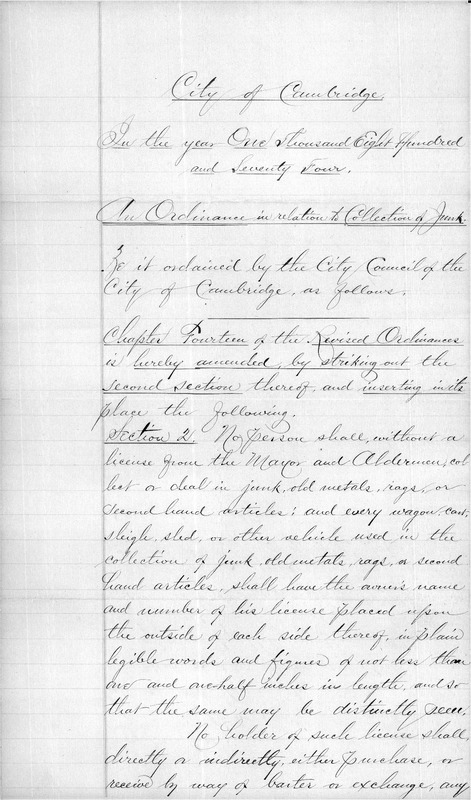 City of Cambridge.
In the year One Thousand Eight Hundred
and Seventy Four.
An Ordinance in relation to Collection of Junk.
Be it ordained by the City Council of the
City of Cambridge, as follows.
Chapter Fourteen of the Revised Ordinances
is hereby amended, by striking out the
second section thereof, and inserting in its
place the following.
Section 2. No Person shall, without a
license from the Mayor and Aldermen, col
lect or deal in junk, old metals, rags, or
second hand articles; and every wagon, cart,
sleigh, sled, or other vehicle used in the
collection of junk, old metals, rags, or second
hand articles, shall have the owner's name
and number of his license placed upon
the outside of each side thereof, in plain
legible words and figures of not less than
one and one-half inches in length, and so
that the same may be distinctly seen.
No holder of such license shall,
directly or indirectly, either purchase, or
receive by way of barter or exchange, any